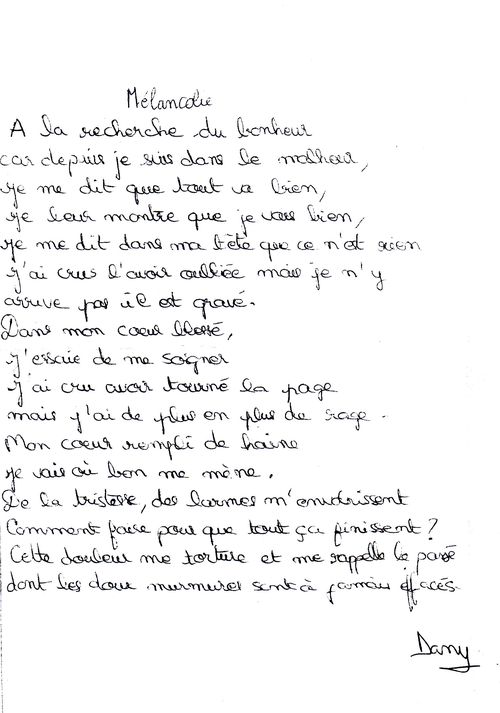 Mélancolie
A la recherche du bonheur
car depuis je suis dans le malheur,
je me dit que tout va bien,
je leur montre que je vais bien,
je me dit dans ma tête que ce n'est rien
J'ai crus l'avoir oubliée mais je n'y
arrive pas il est gravé.
Dans mon coeur blessé,
J'essaie de me soigner
J'ai cru avoir tourné la page
mais j'ai de plus en plus de rage.
Mon coeur rempli de haine
je vais où bon me mène.
De la tristesse, des larmes m'envahissent
Comment faire pour que tout ça finissent ?
Cette douleur me torture et me rappelle le passé
dont les doux murmures sont à jamais effacés.
Dany